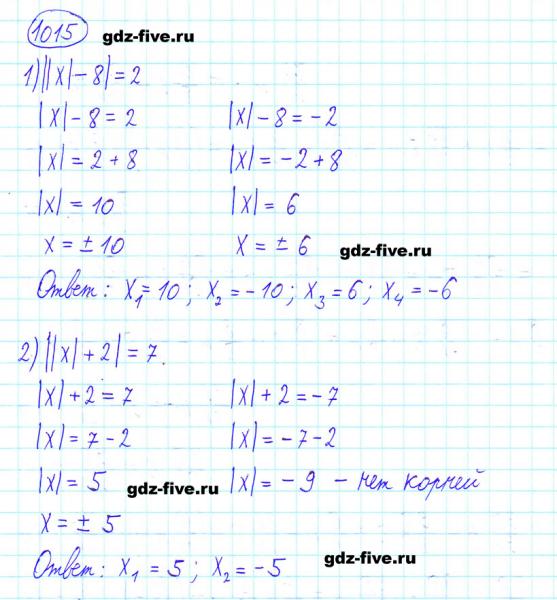 1015 gdz-five.ru
1) ||x| - 8| = 2
|x| - 8 = 2 |x| - 8 = -2
|x| = 2 + 8 |x| = -2 + 8
|x| = 10 |x| = 6
x = ± 10 x = ± 6 gdz-five.ru
Ответ: x₁ = 10; x₂ = -10; x₃ = 6; x₄ = -6
2) ||x| + 2| = 7
|x| + 2 = 7 |x| + 2 = -7
|x| = 7 - 2 |x| = -7 - 2
|x| = 5 gdz-five.ru |x| = -9 - нет корней
x = ± 5
Ответ: x₁ = 5; x₂ = -5 gdz-five.ru